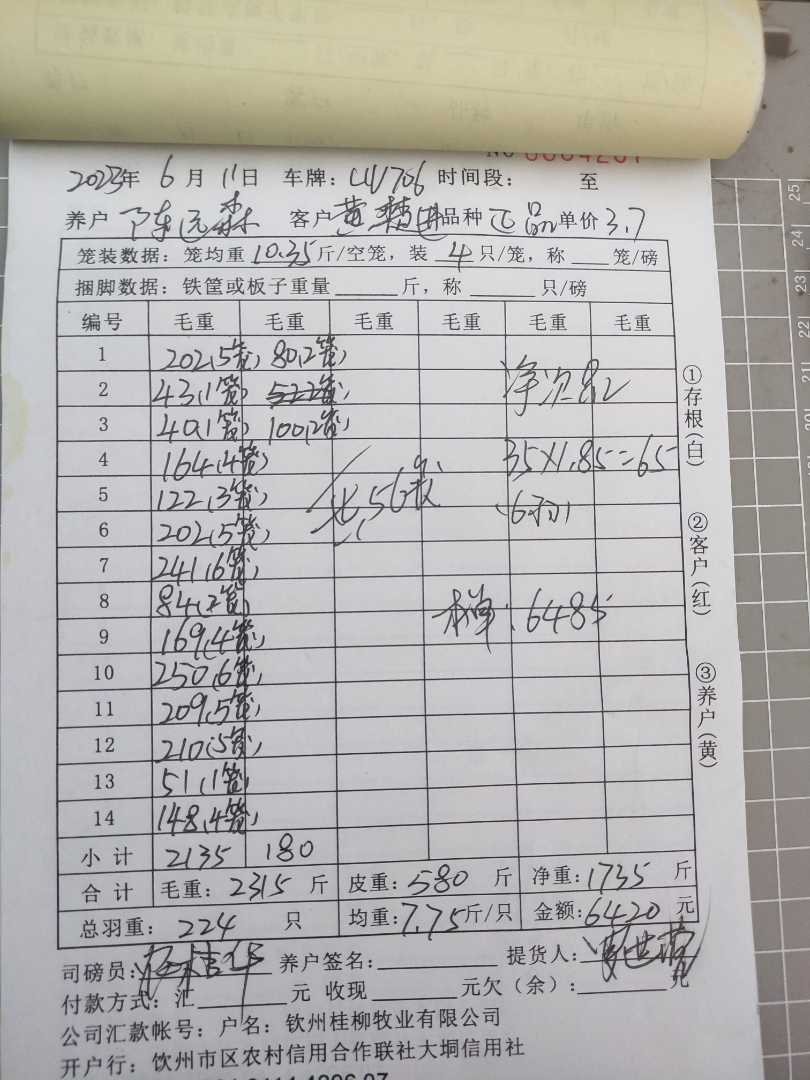 2023年 6 月 11日 车牌: LUV706 时间段: 至
养户 陈远森 客户 黄精进 品种 正品 单价 3.7
笼装数据: 笼均重 10.35 斤/空笼，装 4 只/笼，称 笼/磅
捆脚数据: 铁筐或板子重量 斤，称 只/磅
编号 毛重 毛重 毛重 毛重 毛重 毛重
1 202(5笼) 80(2笼)
2 43(1笼) 净次品
3 40(1笼) 100(2笼)
4 164(4笼) 35×1.85=65
5 122(3笼) 共56笼 (6羽)
6 202(5笼)
7 241(6笼)
8 84(2笼) 本单: 6485
9 169(4笼)
10 250(6笼)
11 209(5笼)
12 210(5笼)
13 51(1笼)
14 148(4笼)
小计 2135 180
合计 毛重: 2315 斤 皮重: 580 斤 净重: 1735 斤
总羽重: 224 只 均重: 7.75 斤/只 金额: 6420 元
司磅员: 养户签名: 提货人:
付款方式: 汇 元 收现 元欠(余): 元
公司汇款帐号: 户名: 钦州桂柳牧业有限公司
开户行: 钦州市区农村信用合作联社大垌信用社
①存根(白)
②客户(红)
③养户(黄)